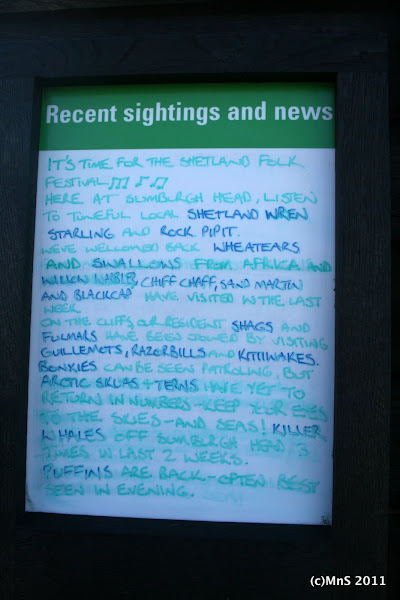 Recent sightings and news
IT'S TIME FOR THE SHETLAND FOLK
FESTIVAL
HERE AT SUMBURGH HEAD, LISTEN
TO TUNEFUL LOCAL SHETLAND WREN
STARLING AND ROCK PIPIT.
WE'VE WELLOMED BACK WHEATEARS
AND SWALLOWS FROM AFRICA AND
WILLOW WARBLER, CHIFF CHAFF, SAND MARTIN
AND BLACKCAP HAVE VISITED IN THE LAST
WEEK
ON THE CLIFFS, OUR RESIDENT SHAGS AND
FULMARS HAVE BEEN JOINED BY VISITING
GUILLEMOTS, RAZORBILLS AND KITTIWAKES.
BONXIES CAN BE SEEN PATROLING, BUT
ARCTIC SKUAS + TERNS HAVE YET TO
RETURN IN NUMBERS - KEEP YOUR EYES
TO THE SKIES - AND SEAS! KILLER
WHALES OFF SUMBURGH HEAD 3
TIMES IN LAST 2 WEEKS.
PUFFINS ARE BACK - OFTEN BEST
SEEN IN EVENING.
(c)MnS 2011